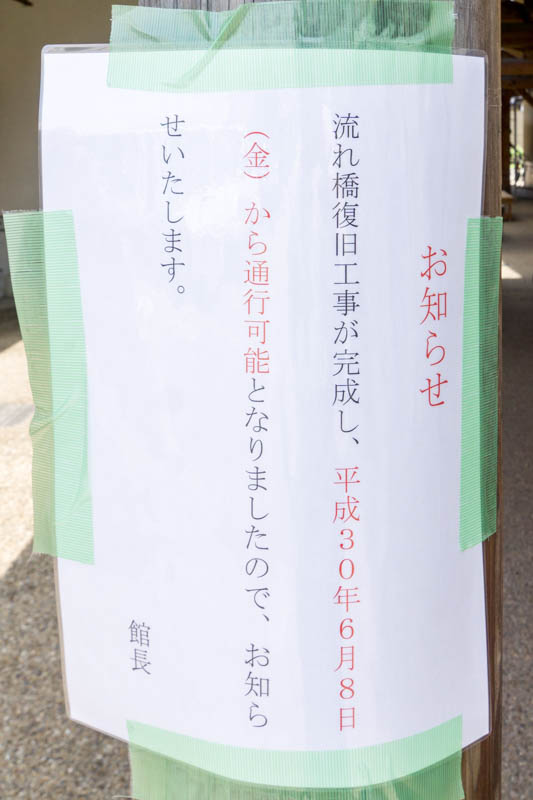 お知らせ
流れ橋復旧工事が完成し、平成３０年６月８日
（金）から通行可能となりましたので、お知ら
せいたします。
館長